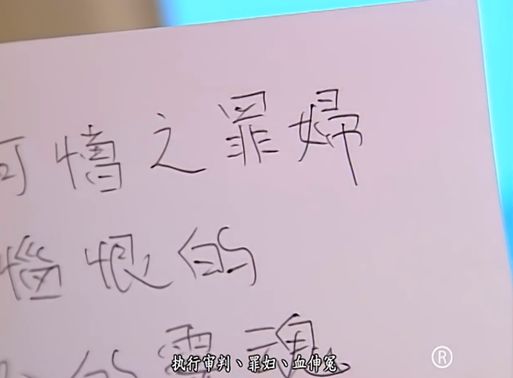 可憎之罪婦
惱恨的
的靈魂
执行审判、罪妇、血伸冤
®